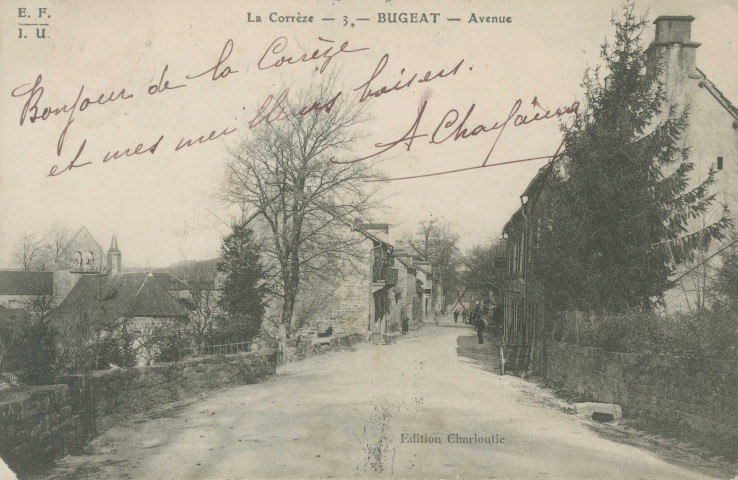 E. F.
I. U.
La Corrèze — 3. — BUGEAT — Avenue
Bonjour de la Corrèze
et mes meilleurs baisers.
Edition Charloutie